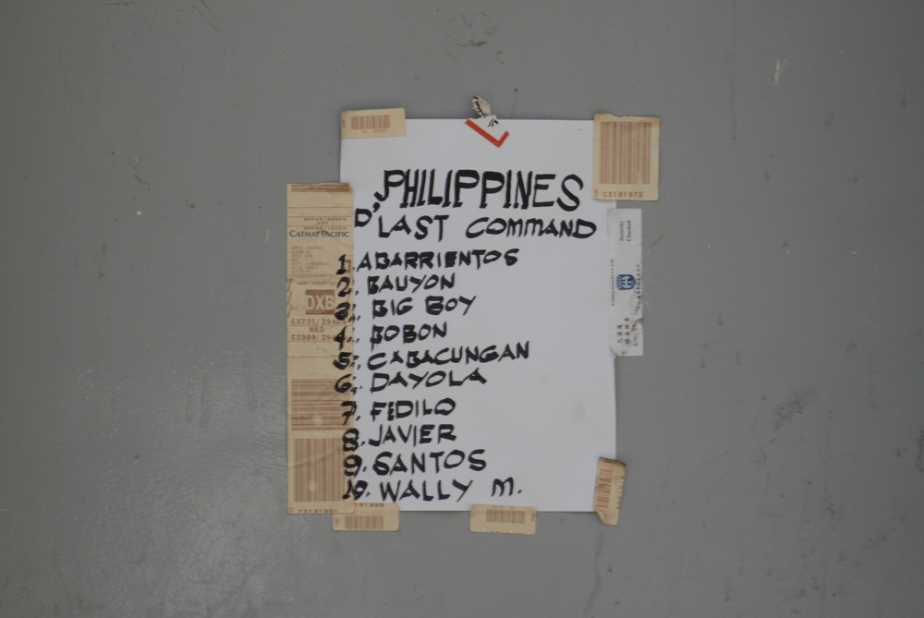 PHILIPPINES
D' LAST COMMAND
1. ABARRIENTOS
2. BAUYON
3. BIG BOY
4. BOBON
5. CABACUNGAN
6. DAYOLA
7. FEDILO
8. JAVIER
9. SANTOS
10. WALLY M.
CATHAY PACIFIC
DXB
CX191972
Security
Checked